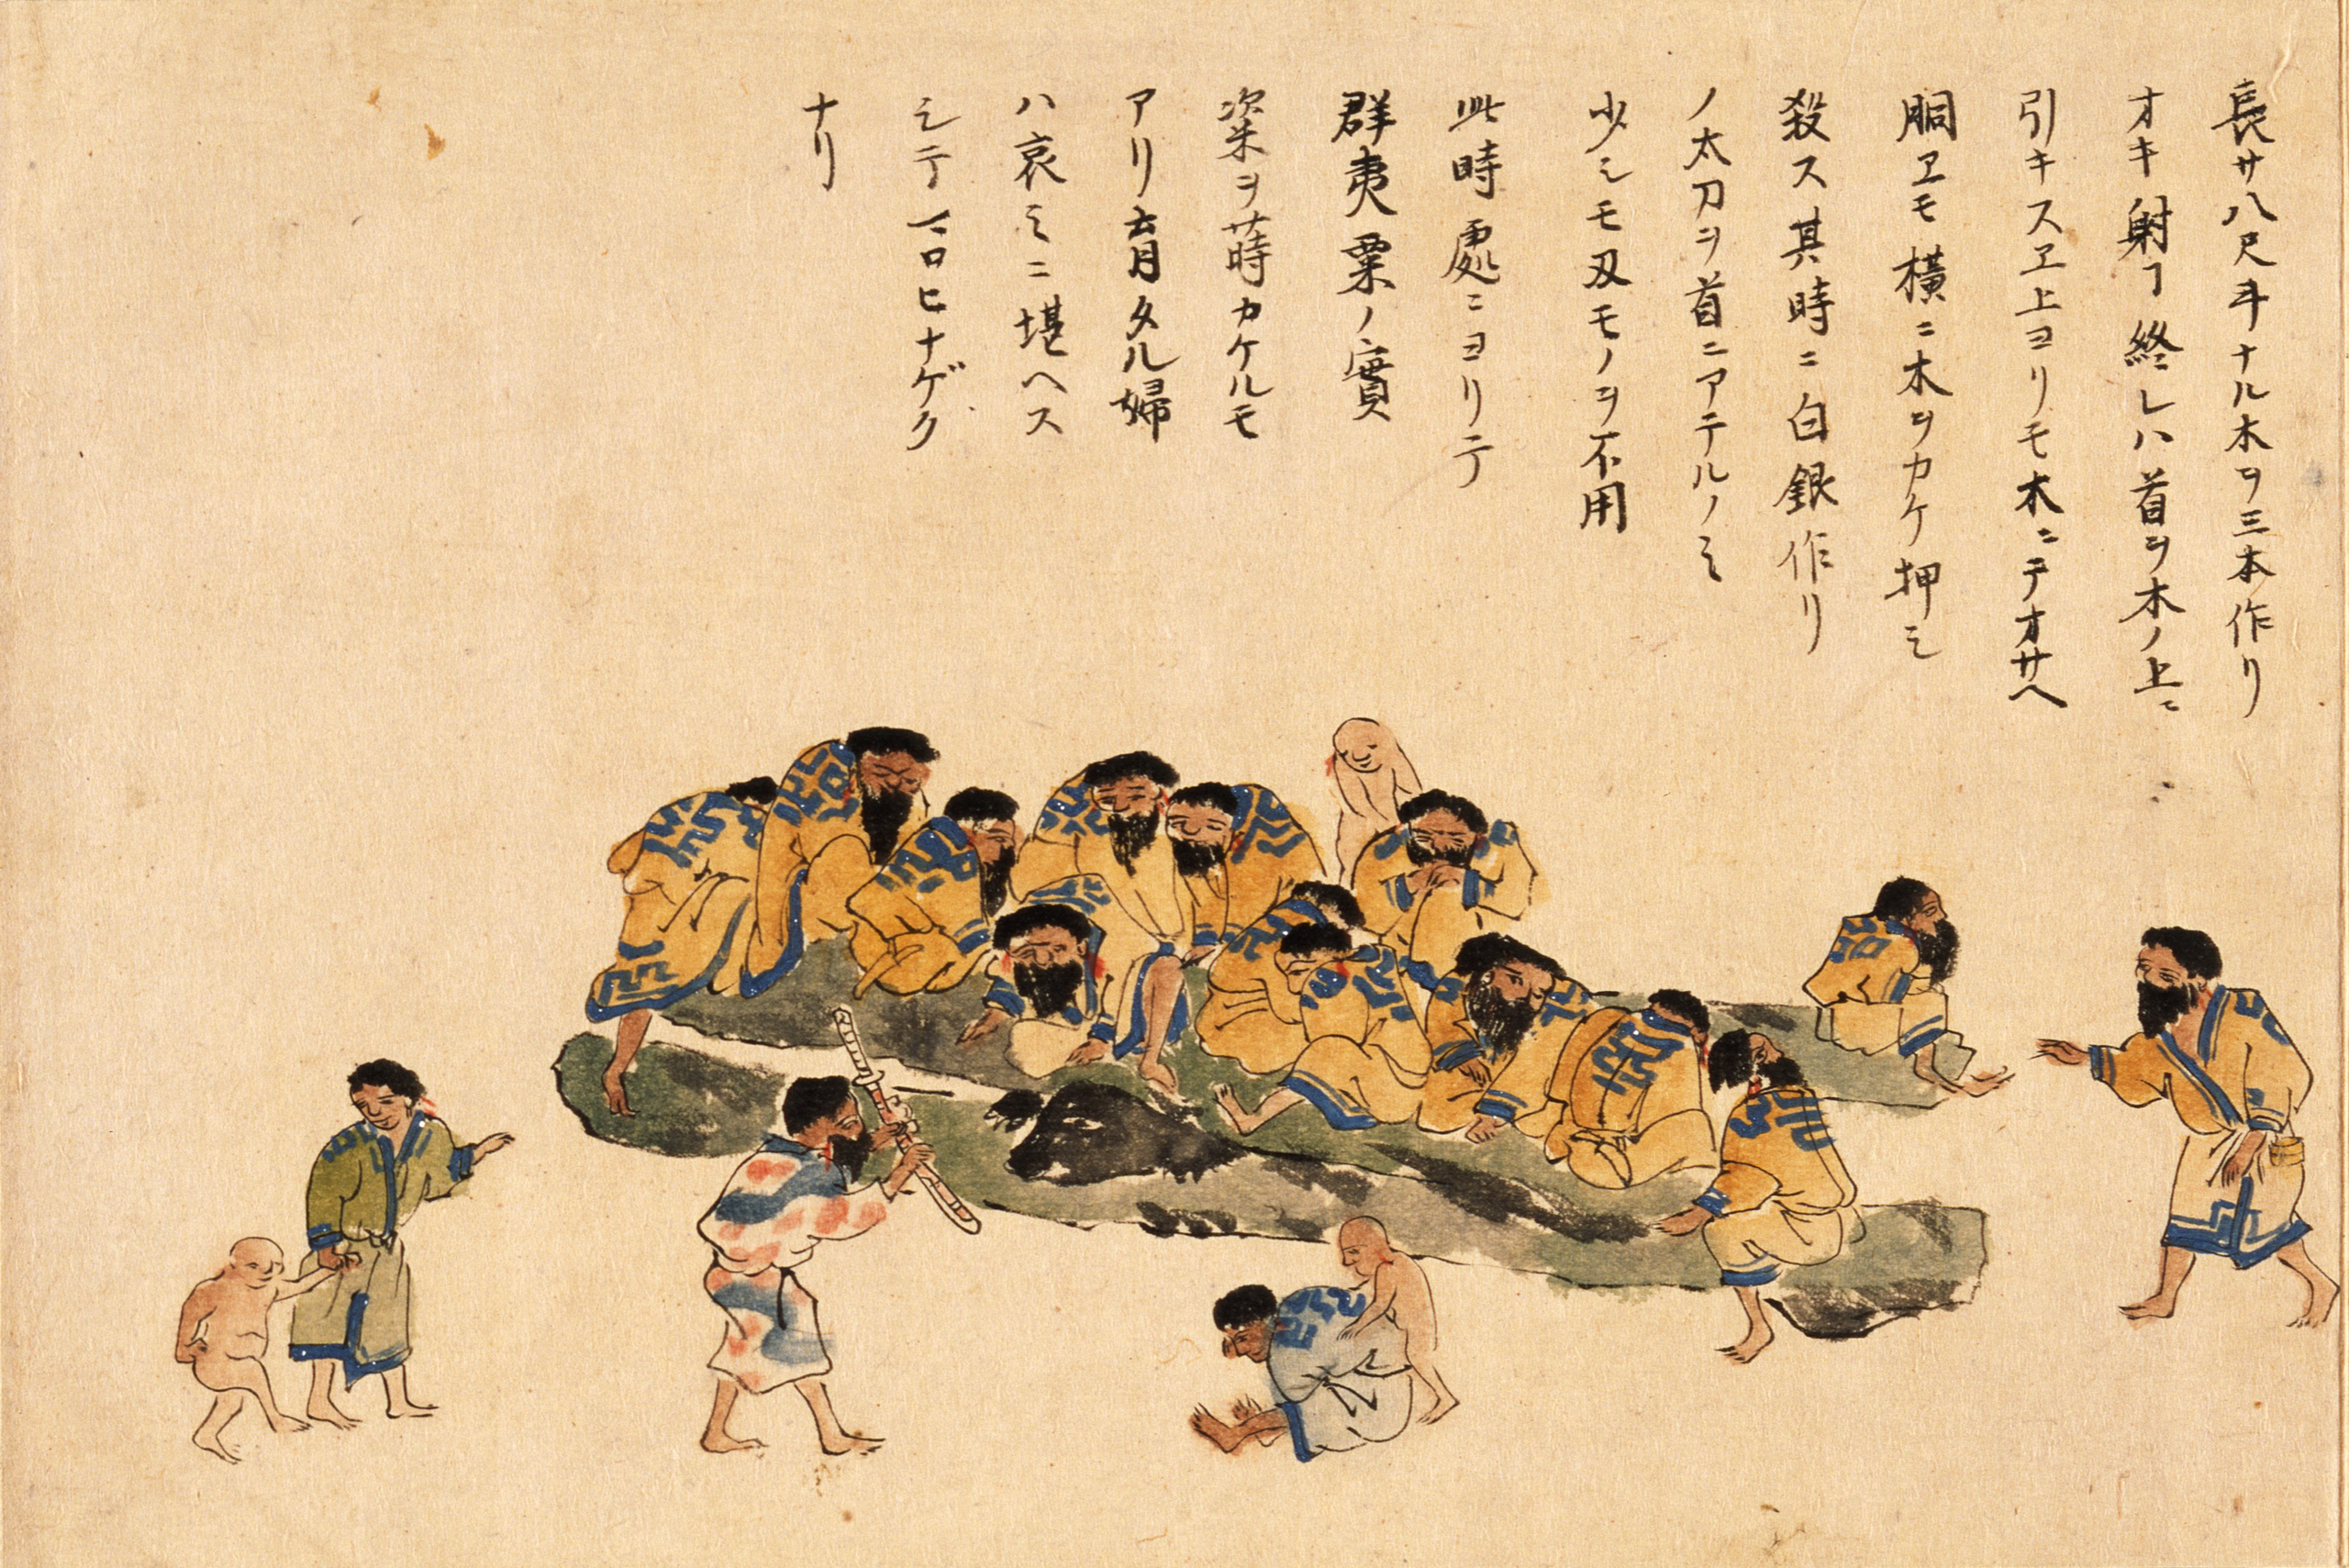 長サ八尺斗ナル木ヲ三本作リ
オキ射ヿ終レハ首ヲ木ノ上ニ
引キスヱ上ヨリモ木ニテオサヘ
胴ヱモ横ニ木ヲカケ押シ
殺ス其時ニ白銀作リ
ノ太刀ヲ首ニアテルノミ
少シモ刄モノヲ不用
此時處ニヨリテ
群夷粟ノ實
粢ヲ蒔カケルモ
アリ育タル婦
ハ哀ミニ堪ヘス
シテ一日ヒナゲク
ナリ